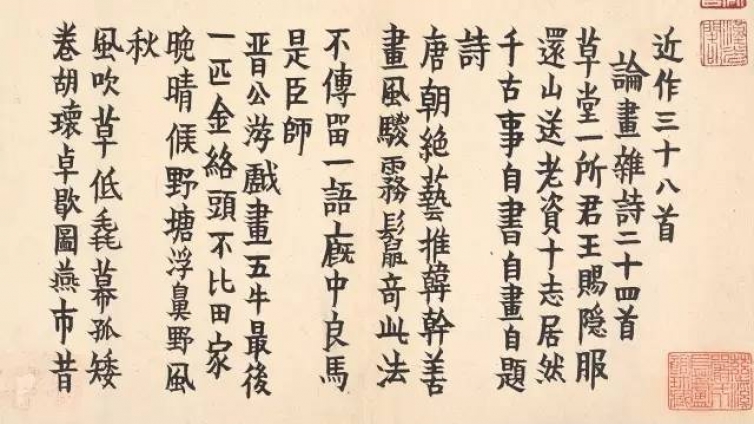 近作三十八首
論畫雜詩二十四首
草堂一所君王賜隱服
還山送老資十志居然
千古事自書自畫自題
詩
唐朝絕藝推韓幹善
畫風騣霧鬣竒此法
不傳留一語上廐中良馬
是臣師
晉公游戲畫五牛最後
一匹金絡頭不比田家
晚晴候野塘浮鼻野風
秋
風吹草低毳幕孤矮
卷胡瓌卓歇圖燕市昔